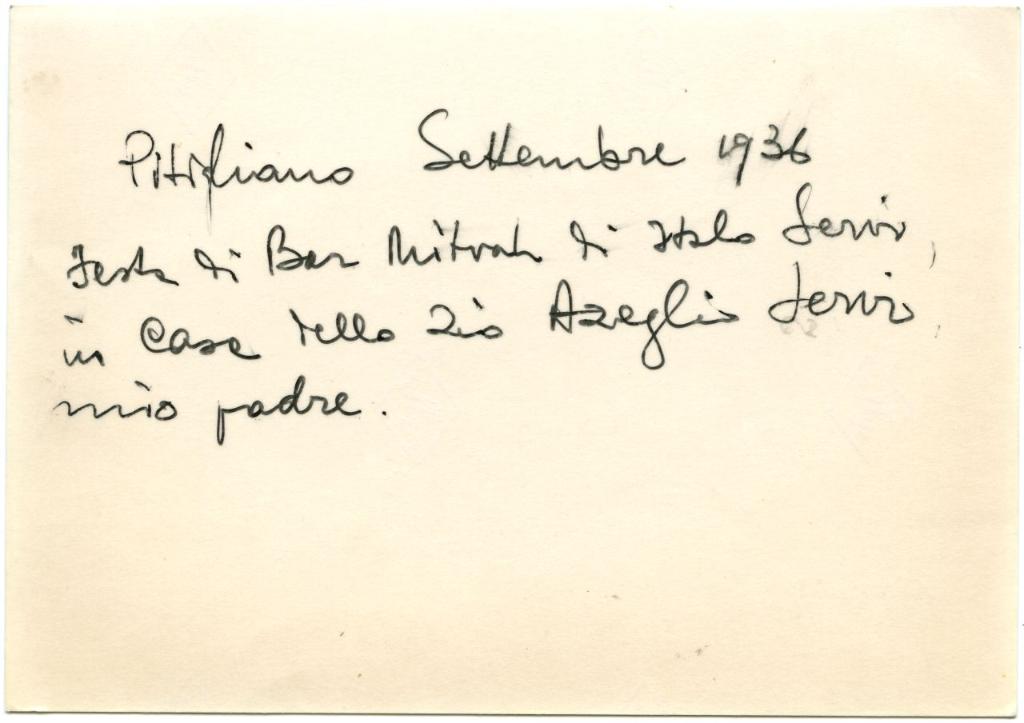 Pitigliano Settembre 1936
Festa di Bar Mitvah di Italo Servi,
in casa dello zio Azeglio Servi,
mio padre.